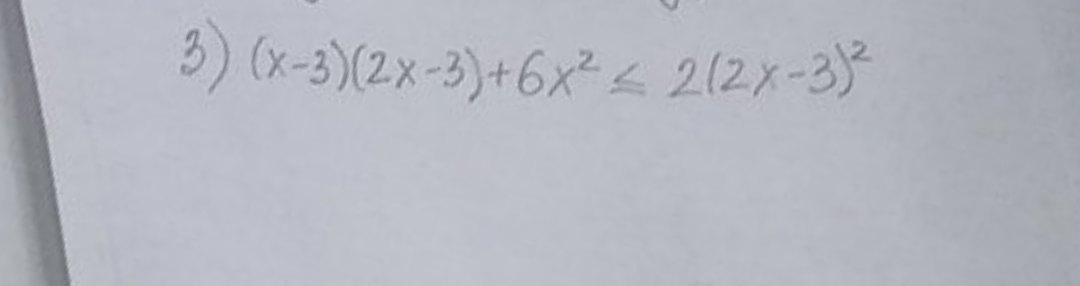 3) (x-3)(2x-3)+6x² ≤ 2(2x-3)²